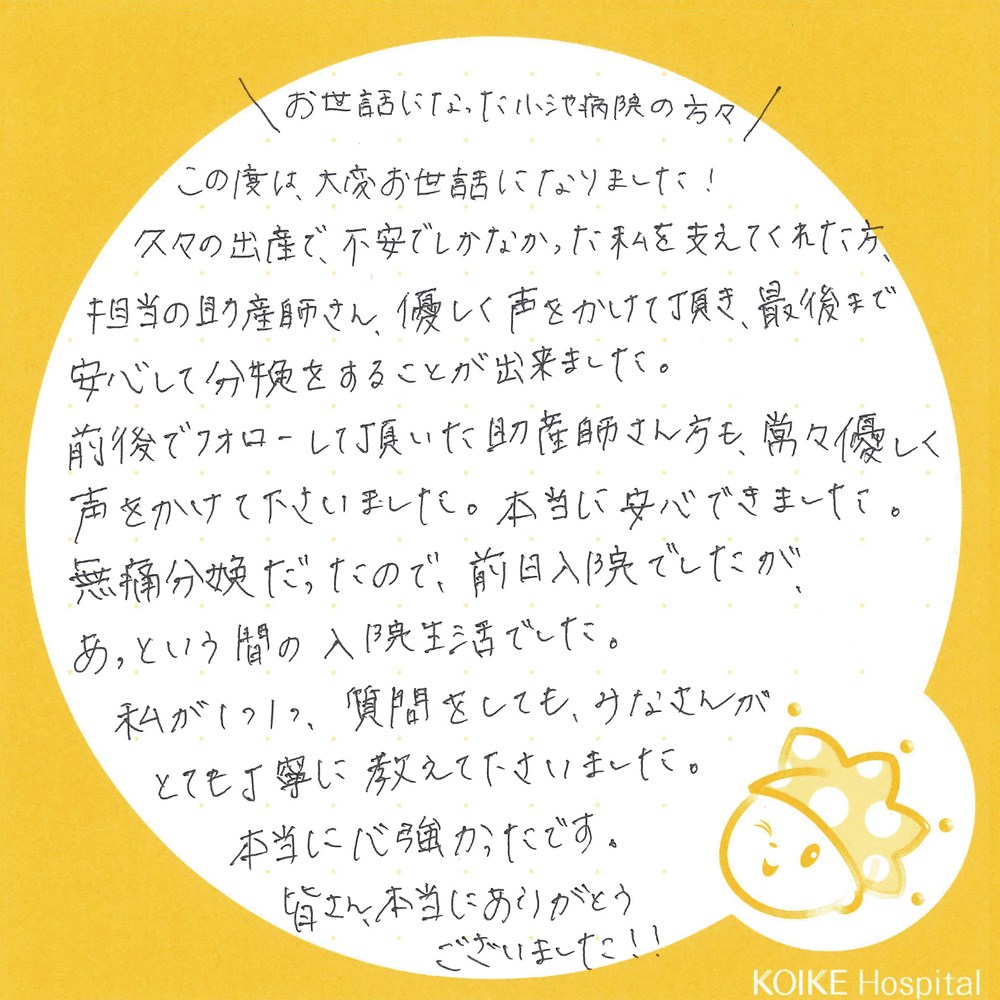 \ お世話になった小池病院の方々 /
この度は、大変お世話になりました！
久々の出産で、不安でしかなかった私を支えてくれた方、
担当の助産師さん、優しく声をかけて頂き、最後まで
安心して分娩をすることが出来ました。
前後でフォローして頂いた助産師さん方も、常々優しく
声をかけて下さいました。本当に安心できました。
無痛分娩だったので、前日入院でしたが、
あっという間の入院生活でした。
私が1つ1つ、質問をしても、みなさんが
とても丁寧に教えて下さいました。
本当に心強かったです。
皆さん、本当にありがとう
ございました！！
KOIKE Hospital